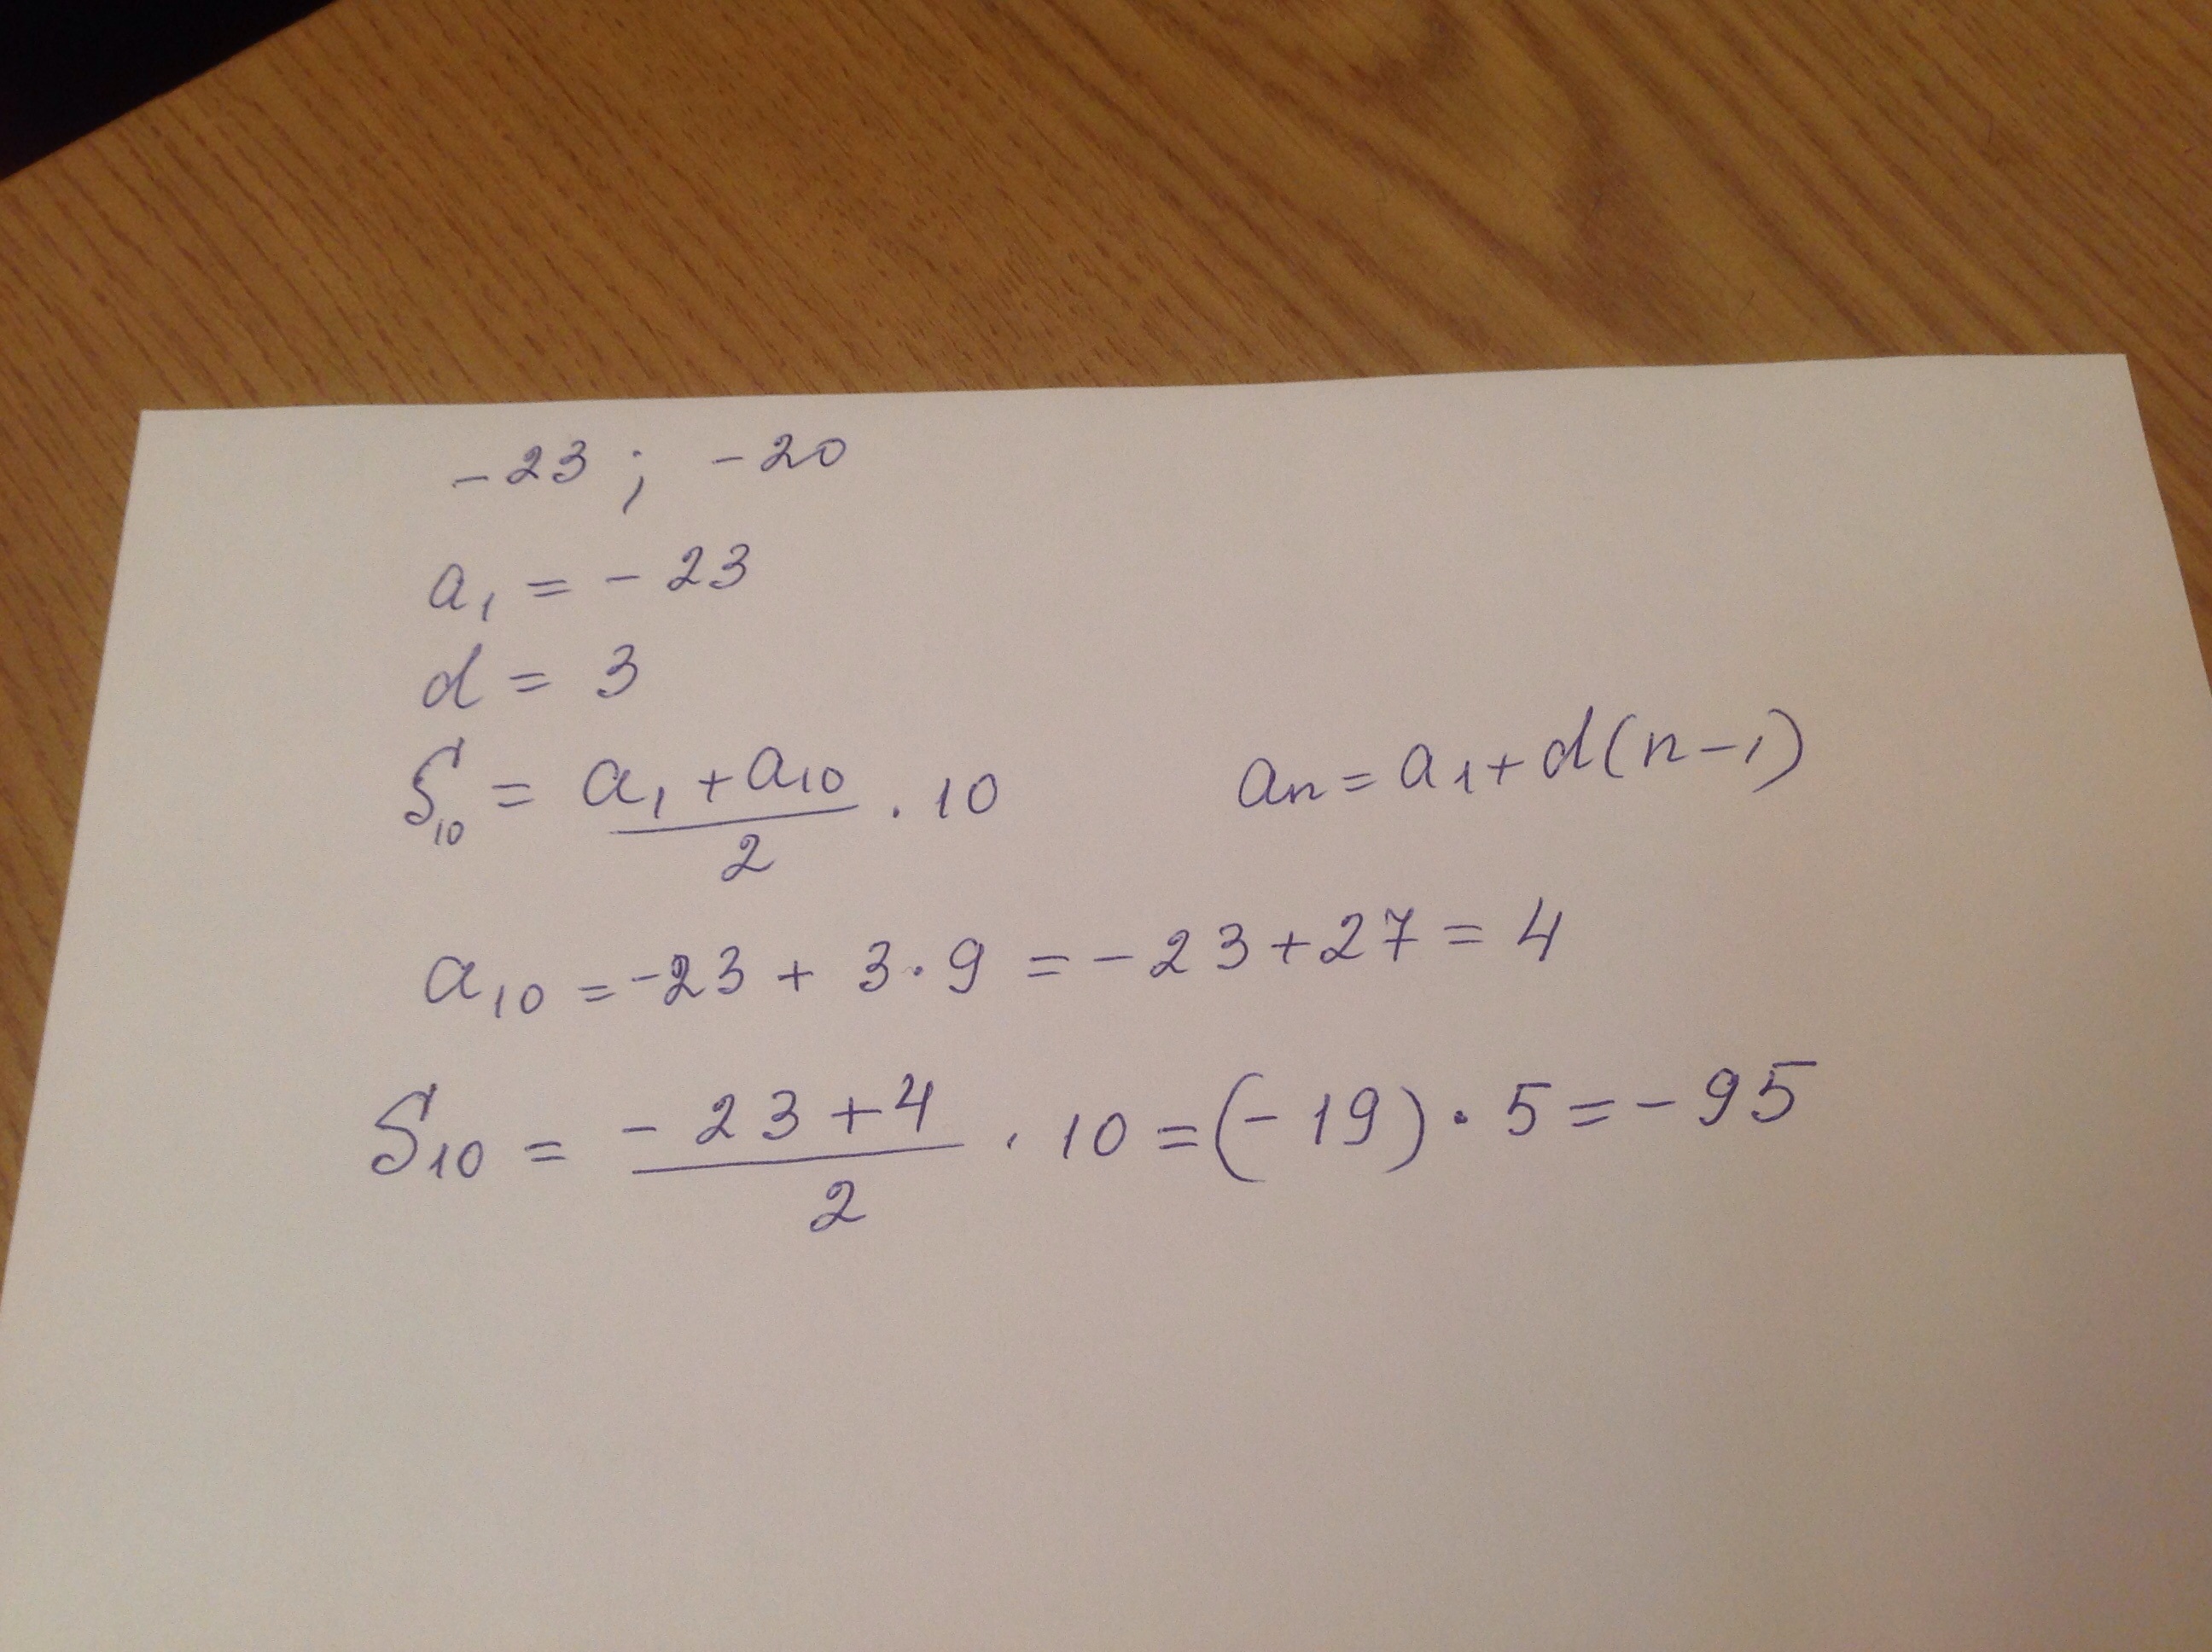 -23 ; -20
a₁ = -23
d = 3
S₁₀ = (a₁ + a₁₀)/2 · 10    aₙ = a₁ + d(n-1)
a₁₀ = -23 + 3·9 = -23 + 27 = 4
S₁₀ = (-23 + 4)/2 · 10 = (-19) · 5 = -95